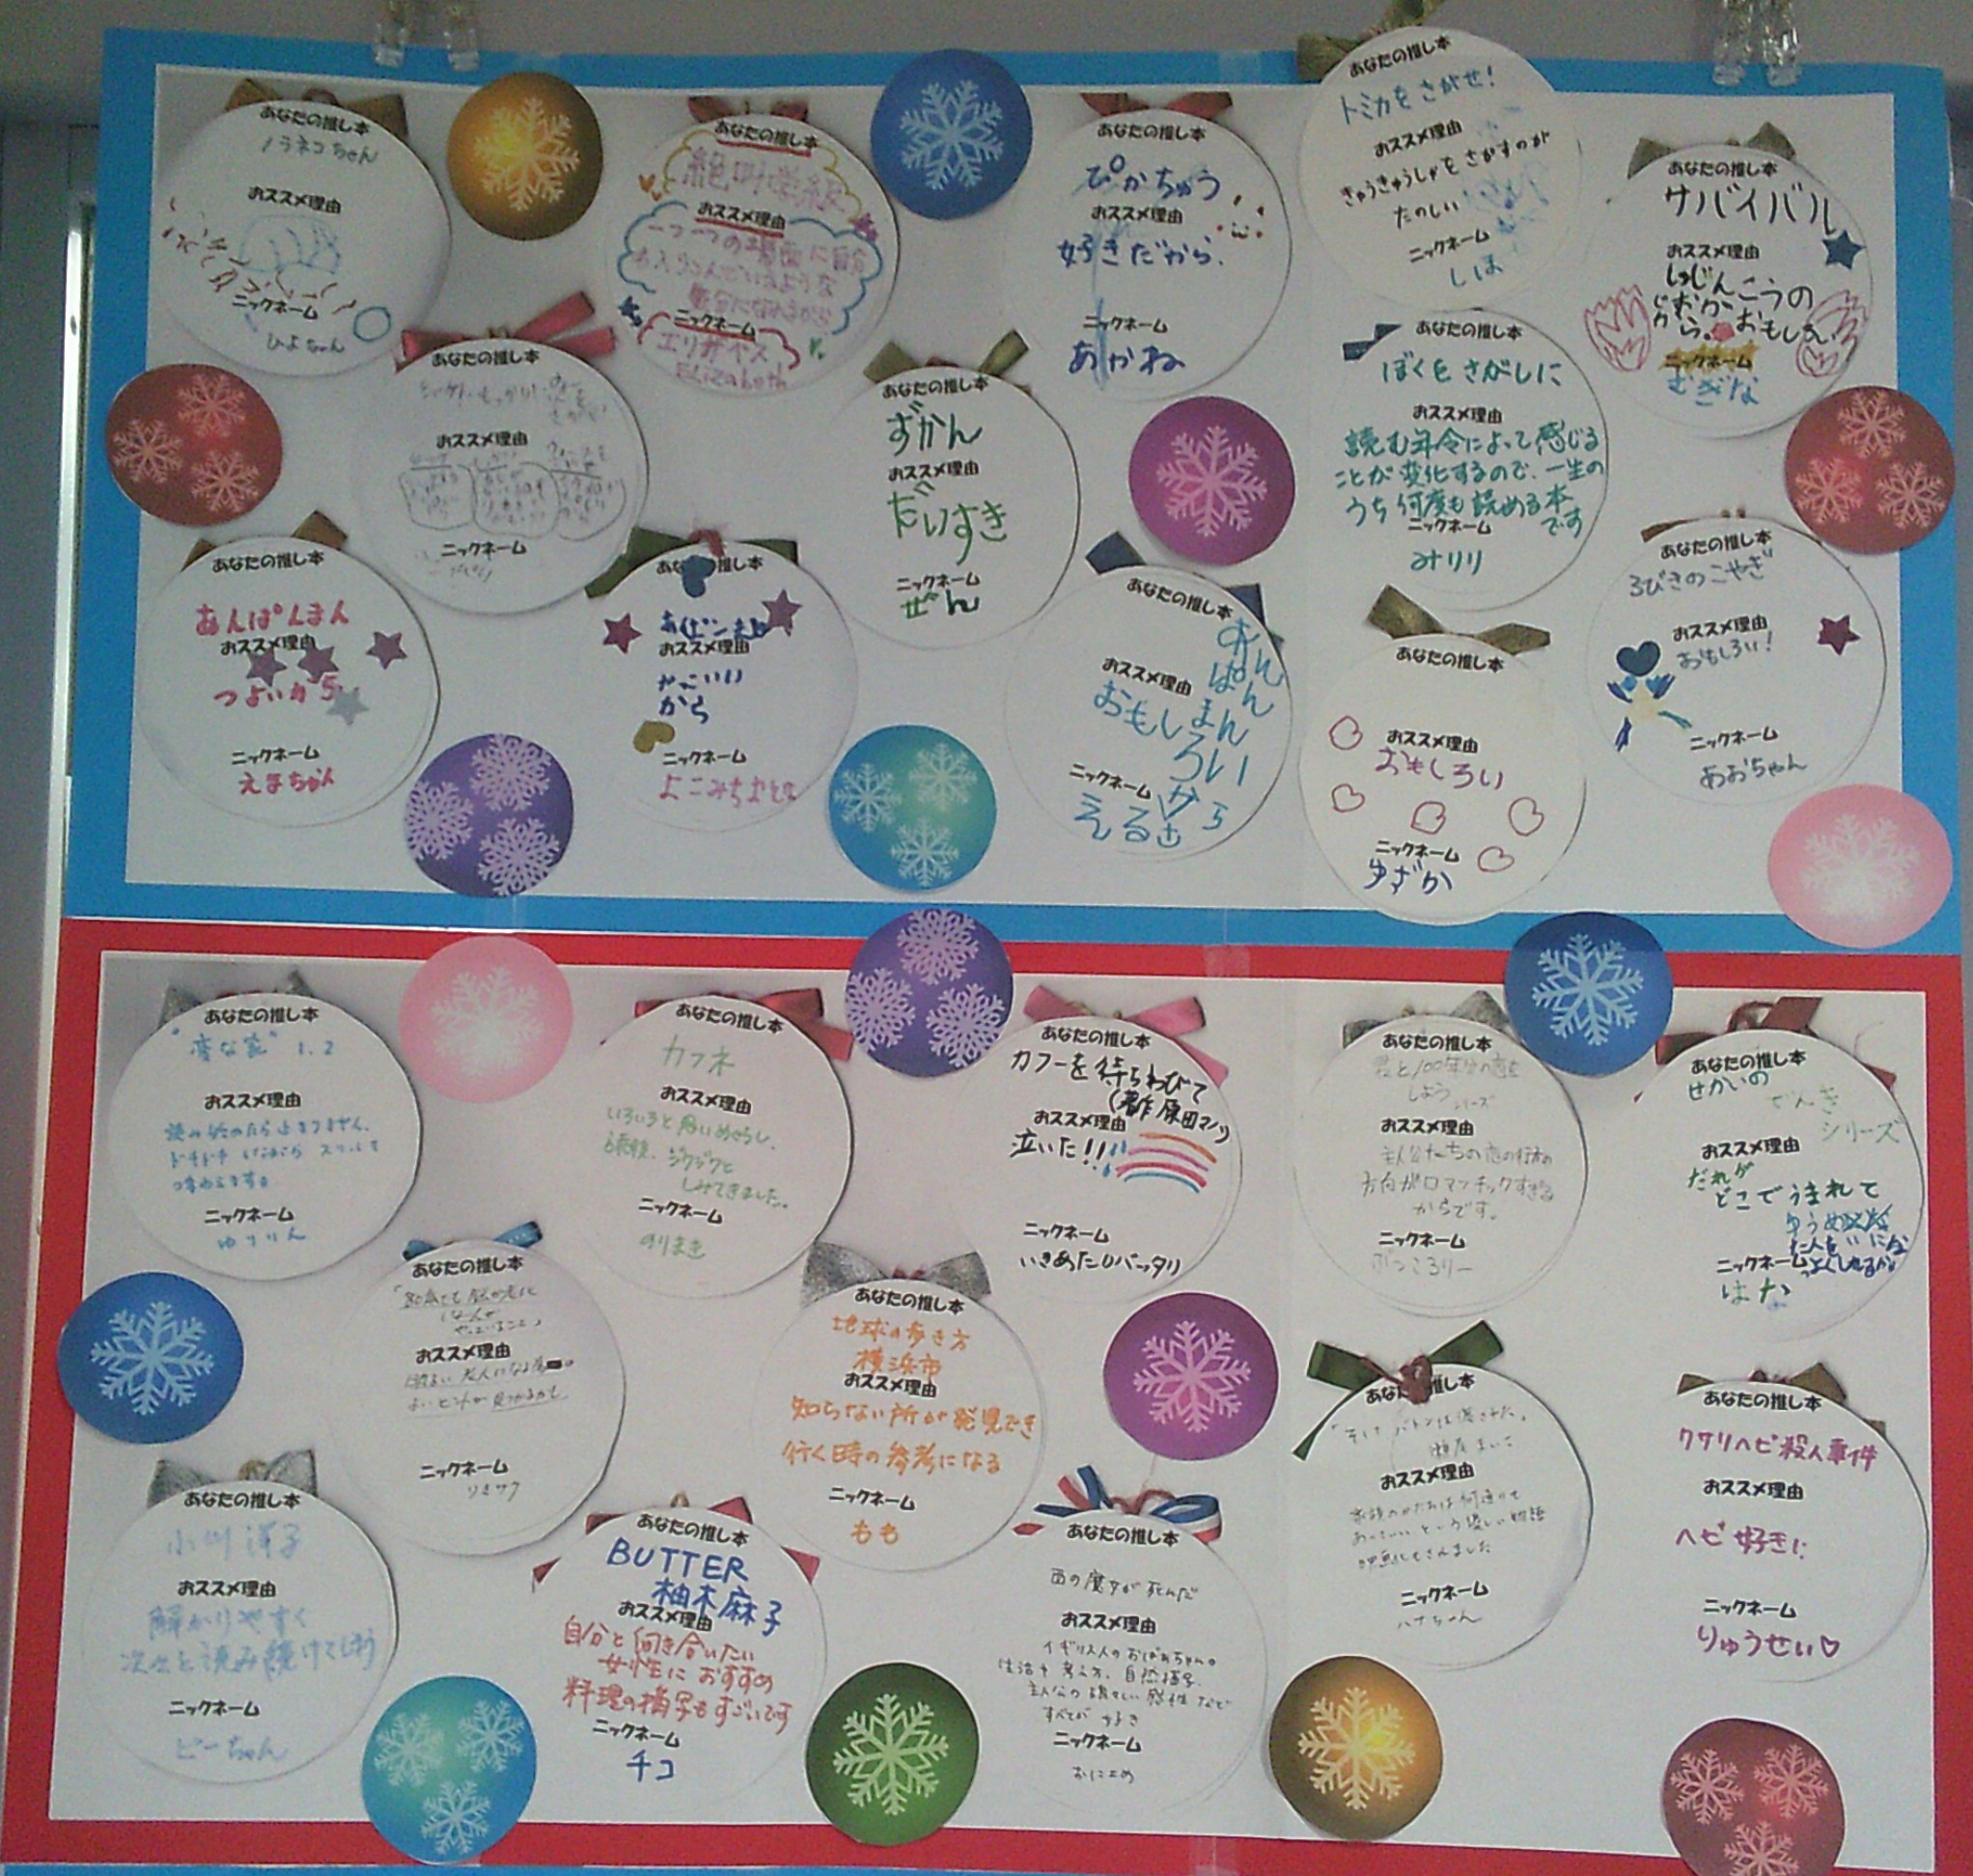 あなたの推し本
ノラネコちゃん
おススメ理由
ニックネーム
ひよちゃん
あなたの推し本
絶叫学級
おススメ理由
一つ一つの場面に自分
も入りこんでいるような
気分になれるから
ニックネーム
エリザベス
Elizabeth
あなたの推し本
ぴかちゅう
おススメ理由
好きだから.
ニックネーム
あかね
あなたの推し本
トミカをさがせ!
おススメ理由
きゅうきゅうしゃをさがすのが
たのしい
ニックネーム
しほ
あなたの推し本
サバイバル
おススメ理由
しゅじんこうの
おもしろい
ニックネーム
むぎな
あなたの推し本
おススメ理由
ニックネーム
あなたの推し本
ずかん
おススメ理由
だいすき
ニックネーム
ぜん
あなたの推し本
ぼくをさがしに
おススメ理由
読む年令によって感じる
ことが変化するので、一生の
うち何度も読める本
です
ニックネーム
みりり
あなたの推し本
あんぱんまん
おススメ理由
つよいから
ニックネーム
えまちゃん
あなたの推し本
おススメ理由
かっこいい
から
ニックネーム
よこみちおとは
あなたの推し本
あんぱんまん
おススメ理由
おもしろい
ニックネーム
える
あなたの推し本
おススメ理由
おもしろい
ニックネーム
ゆずか
あなたの推し本
3びきのこやぎ
おススメ理由
おもしろい!
ニックネーム
あおちゃん
あなたの推し本
"変な家" 1.2
おススメ理由
読み始めたら止まりません。
ドキドキしながら スリルを
つ
ニックネーム
ゆりりん
あなたの推し本
カフネ
おススメ理由
いろいろと思いめぐらし、
読後、ジワジワと
しみてきました。
ニックネーム
のりまき
あなたの推し本
カフーを待ちわびて
(著作 原田マハ)
おススメ理由
泣いた!!
ニックネーム
いきあたりバッタリ
あなたの推し本
君と100年分の恋を
しよう シリーズ
おススメ理由
主人公たちの恋の行末の
方向がロマンチックすぎる
からです。
ニックネーム
あなたの推し本
せかいの
でんき
シリーズ
おススメ理由
だれが
どこでうまれて
ニックネーム
はな
あなたの推し本
「80歳でも脳が老化
しない人が
やっていること」
おススメ理由
明るい老人になる為の
よいヒントが見つかるかも
ニックネーム
リさサク
あなたの推し本
地球の歩き方
横浜市
おススメ理由
知らない所が発見でき
行く時の参考になる
ニックネーム
もも
あなたの推し本
「そして、バトンは渡された」
瀬尾まいこ
おススメ理由
家族のかたちは何通りも
あっていいという優しい物語
映画化もされました
ニックネーム
ハナちゃん
あなたの推し本
クサリヘビ殺人事件
おススメ理由
ヘビ好きに
ニックネーム
りゅうせい♡
あなたの推し本
小川洋子
おススメ理由
解かりやすく
次々と読み続けてしまう
ニックネーム
ピーちゃん
あなたの推し本
BUTTER
柚木麻子
おススメ理由
自分と向き合いたい
女性におすすめ
料理の描写もすごいです
ニックネーム
チコ
あなたの推し本
西の魔女が死んだ
おススメ理由
イギリス人のおばあちゃんの
生活や考え方、自然描写、
主人公の瑞々しい感性など
すべてが好き
ニックネーム
おによめ